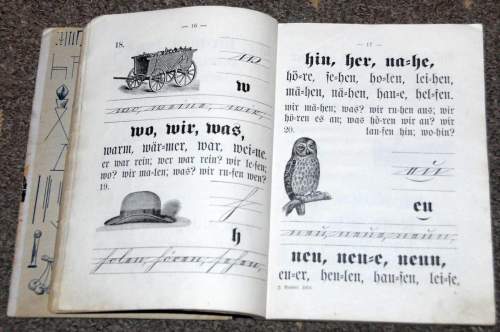 — 16 —
18.
w
w
we, weine, wir,
wo, wir, was,
warm, wär=mer, war, wei=ne.
er war rein; wer war rein? wir le=sen;
wo? wir ma=len; was? wir ru=fen wen?
19.
h
h
holen, hören, sehen,
— 17 —
hin, her, na=he,
hö=re, se=hen, ho=len, lei=hen,
mä=hen, nä=hen, hau=e, hel=fen.
wir mä=hen; was? wir ru=hen aus; wir
hö=ren es an; was hö=ren wir an? wir
20. lau=fen hin; wo=hin?
eu
eu
neu, neue, neun,
neu, neu=e, neun,
eu=er, heu=len, hau=sen, lei=se.